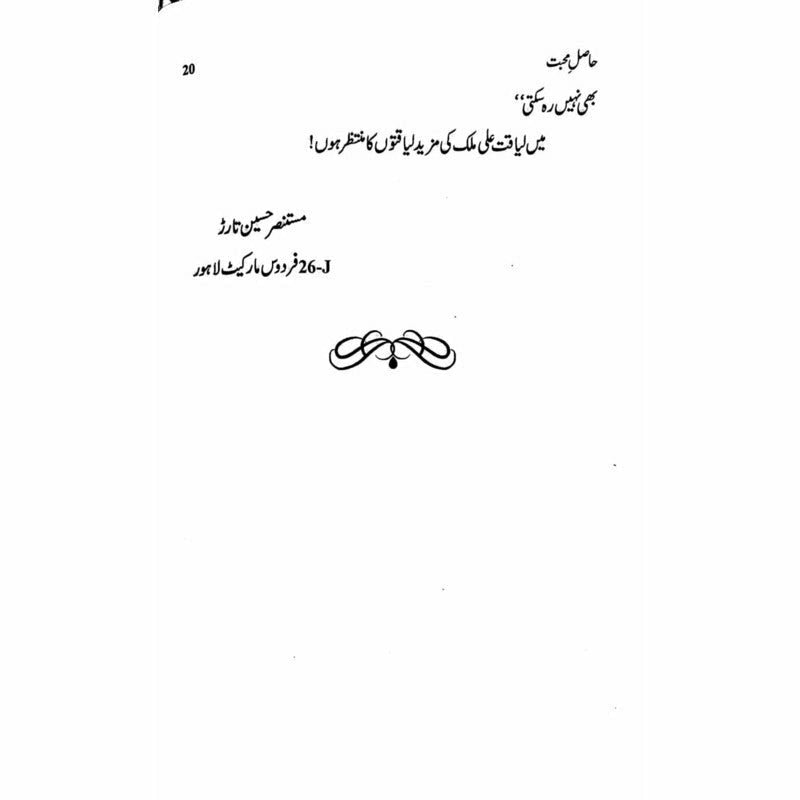 حاصلِ محبت 20
بھی نہیں رہ سکتی‘‘
میں لیاقت علی ملک کی مزید لیاقتوں کا منتظر ہوں!
مستنصر حسین تارڑ
26-J فردوس مارکیٹ لاہور